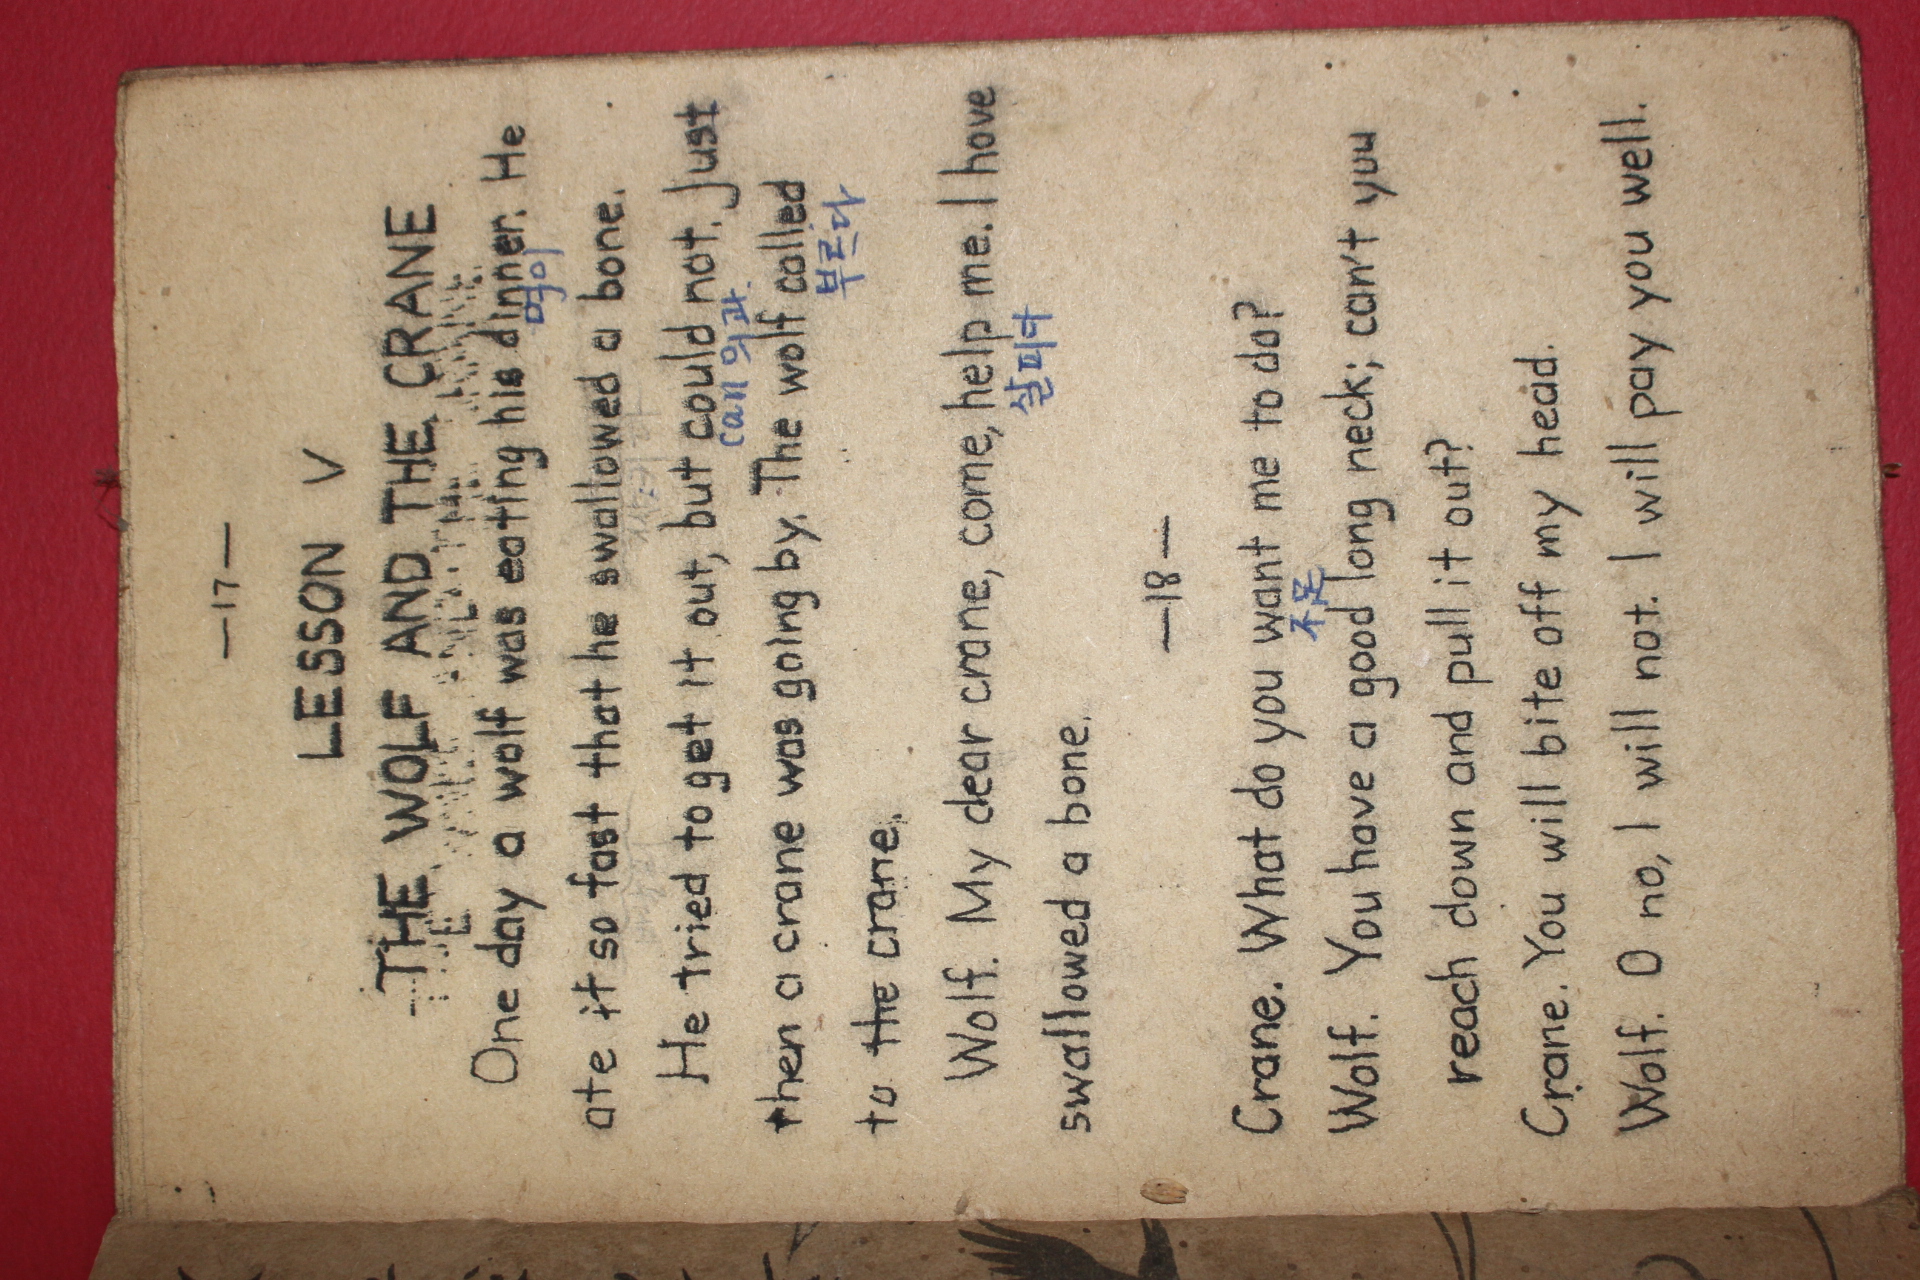 —17—
LESSON V
THE WOLF AND THE CRANE
One day a wolf was eating his dinner. He
먹이
ate it so fast that he swallowed a bone.
He tried to get it out, but could not. Just
can 의 과.
then a crane was going by. The wolf called
부르다
to the crane.
Wolf. My dear crane, come, help me. I have
살피다
swallowed a bone.
—18—
Crane. What do you want me to do?
不足
Wolf. You have a good long neck; can't you
reach down and pull it out?
Crane. You will bite off my head.
Wolf. O no, I will not. I will pay you well.